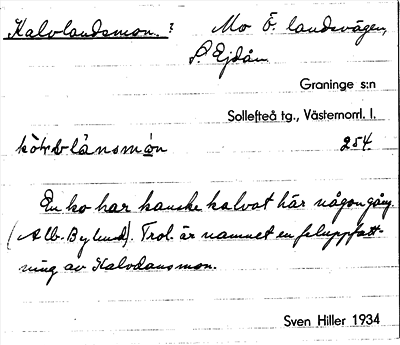 Kalvlandsmon. ? Mo Ö. landsvägen,
S. Ejdån
Graninge s:n
Sollefteå tg., Västernorrl. l.
länsmo̲n 254
En ko har kanske kalvat här någon gång.
(Alb. Bylund). Trol. är namnet en feluppfatt-
ning av Kalvdansmon.
Sven Hiller 1934